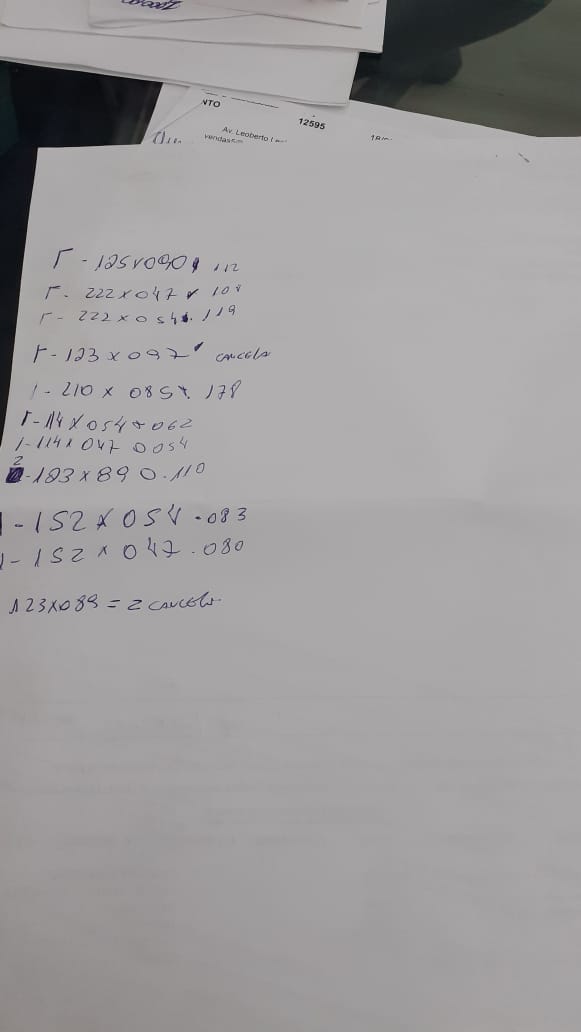 NTO
12595
Av. Leoberto
vendas
1 - 125 x 090 112
1 - 222 x 047 108
1 - 222 x 054 . 119
1 - 123 x 097 cancela
1 - 210 x 085 . 178
1 - 114 x 054 062
1 - 114 x 047 0054
2
- 123 x 890 . 110
1 - 152 x 054 . 083
1 - 152 x 047 . 080
123 x 089 = 2 cancela